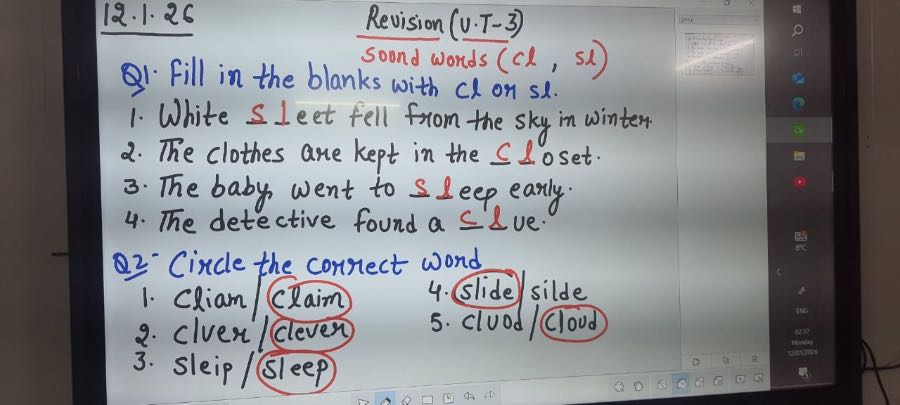 12.1.26
Revision (U.T-3)
Sound words (cl, sl)
Q1. Fill in the blanks with cl or sl.
1. White sleet fell from the sky in winter.
2. The clothes are kept in the closet.
3. The baby went to sleep early.
4. The detective found a clue.
Q2- Circle the correct word
1. Cliam / Claim
2. clver / clever
3. sleip / sleep
4. slide / silde
5. cluod / cloud
8°C
ENG
02:27
Monday
12/01/2026